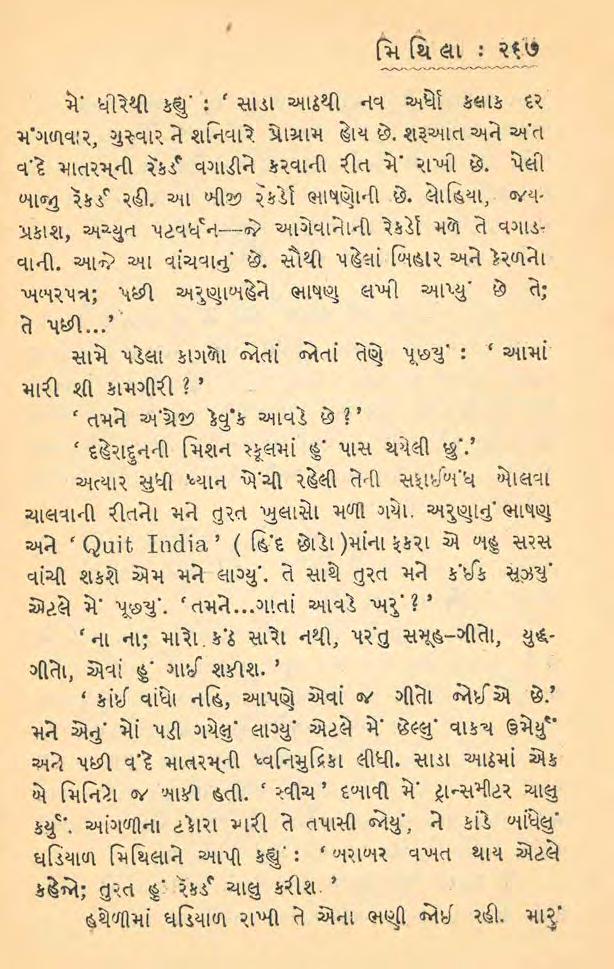 મિથિલા : ૨૬૭
મેં ધીરેથી કહ્યું : ‘ સાડા આઠથી નવ અર્ધો કલાક દર
મંગળવાર, ગુરુવાર ને શનિવારે પ્રોગ્રામ હોય છે. શરૂઆત અને અંત
વંદે માતરમ્‌ની રેંકર્ડ વગાડીને કરવાની રીત મેં રાખી છે. પેલી
બાજુ રેંકર્ડ રહી. આ બીજી રેંકર્ડો ભાષણોની છે. લોહિયા, જય-
પ્રકાશ, અચ્યુત પટવર્ધન—જે આગેવાનોની રેકર્ડો મળે તે વગાડ-
વાની. આજે આ વાંચવાનું છે. સૌથી પહેલાં બિહાર અને કેરળનો
ખબરપત્ર; પછી અરુણાબહેને ભાષણ લખી આપ્યું છે તે;
તે પછી...’
સામે પડેલા કાગળો જોતાં જોતાં તેણે પૂછ્યું : ‘ આમાં
મારી શી કામગીરી ? ’
‘ તમને અંગ્રેજી કેવુંક આવડે છે ? ’
‘ દહેરાદુનની મિશન સ્કૂલમાં હું પાસ થયેલી છું.’
અત્યાર સુધી ધ્યાન ખેંચી રહેલી તેની સફાઈબંધ બોલવા
ચાલવાની રીતનો મને તુરત ખુલાસો મળી ગયો. અરુણાનું ભાષણ
અને ‘ Quit India ’ ( હિંદ છોડો )માંના ફકરા એ બહુ સરસ
વાંચી શકશે એમ મને લાગ્યું. તે સાથે તુરત મને કંઈક સૂઝ્યું
એટલે મેં પૂછ્યું. ‘ તમને...ગાતાં આવડે ખરું ? ’
‘ ના ના; મારો કંઠ સારો નથી, પરંતુ સમૂહ-ગીતો, યુદ્ધ-
ગીતો, એવાં હું ગાઈ શકીશ. ’
‘ કાંઈ વાંધો નહિ, આપણે એવાં જ ગીતો જોઈએ છે.’
મને એનું મોં પડી ગયેલું લાગ્યું એટલે મેં છેલ્લું વાક્ય ઉમેર્યું
અને પછી વંદે માતરમ્‌ની ધ્વનિમુદ્રિકા લીધી. સાડા આઠમાં એક
બે મિનિટો જ બાકી હતી. ‘ સ્વીચ ’ દબાવી મેં ટ્રાન્સમીટર ચાલુ
કર્યું. આંગળીના ટકોરા મારી તે તપાસી જોયું, ને કાંડે બાંધેલું
ઘડિયાળ મિથિલાને આપી કહ્યું : ‘ બરાબર વખત થાય એટલે
કહેજો; તુરત હું રેંકર્ડ ચાલુ કરીશ. ’
હથેળીમાં ઘડિયાળ રાખી તે એના ભણી જોઈ રહી. મારું